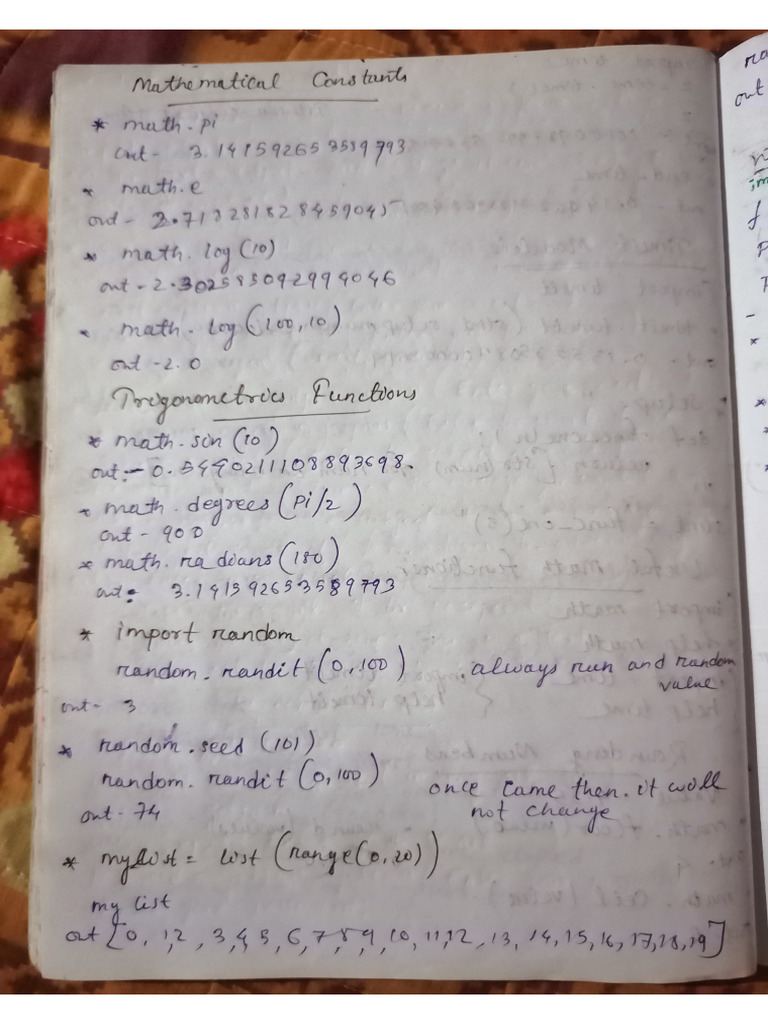 Mathematical Constants
* math.pi
out - 3.141592653589793
* math.e
out - 2.718281828459045
* math.log(10)
out - 2.302585092994046
* math.log(100,10)
out - 2.0
Trigonometrics Functions
* math.sin(10)
out:- 0.54402111108893698.
* math.degrees(Pi/2)
out - 900
* math.radians(180)
out: 3.141592653589793
* import random
random.randit(0,100) always run and random
value
out - 3
* random.seed(101)
random.randit(0,100) once came then. it will
not change
out - 74
* mylist = list(range(0,20))
my list
out [0, 1,2, 3,4,5, 6,7,8,9, 10, 11,12, 13, 14, 15, 16, 17,18,19]